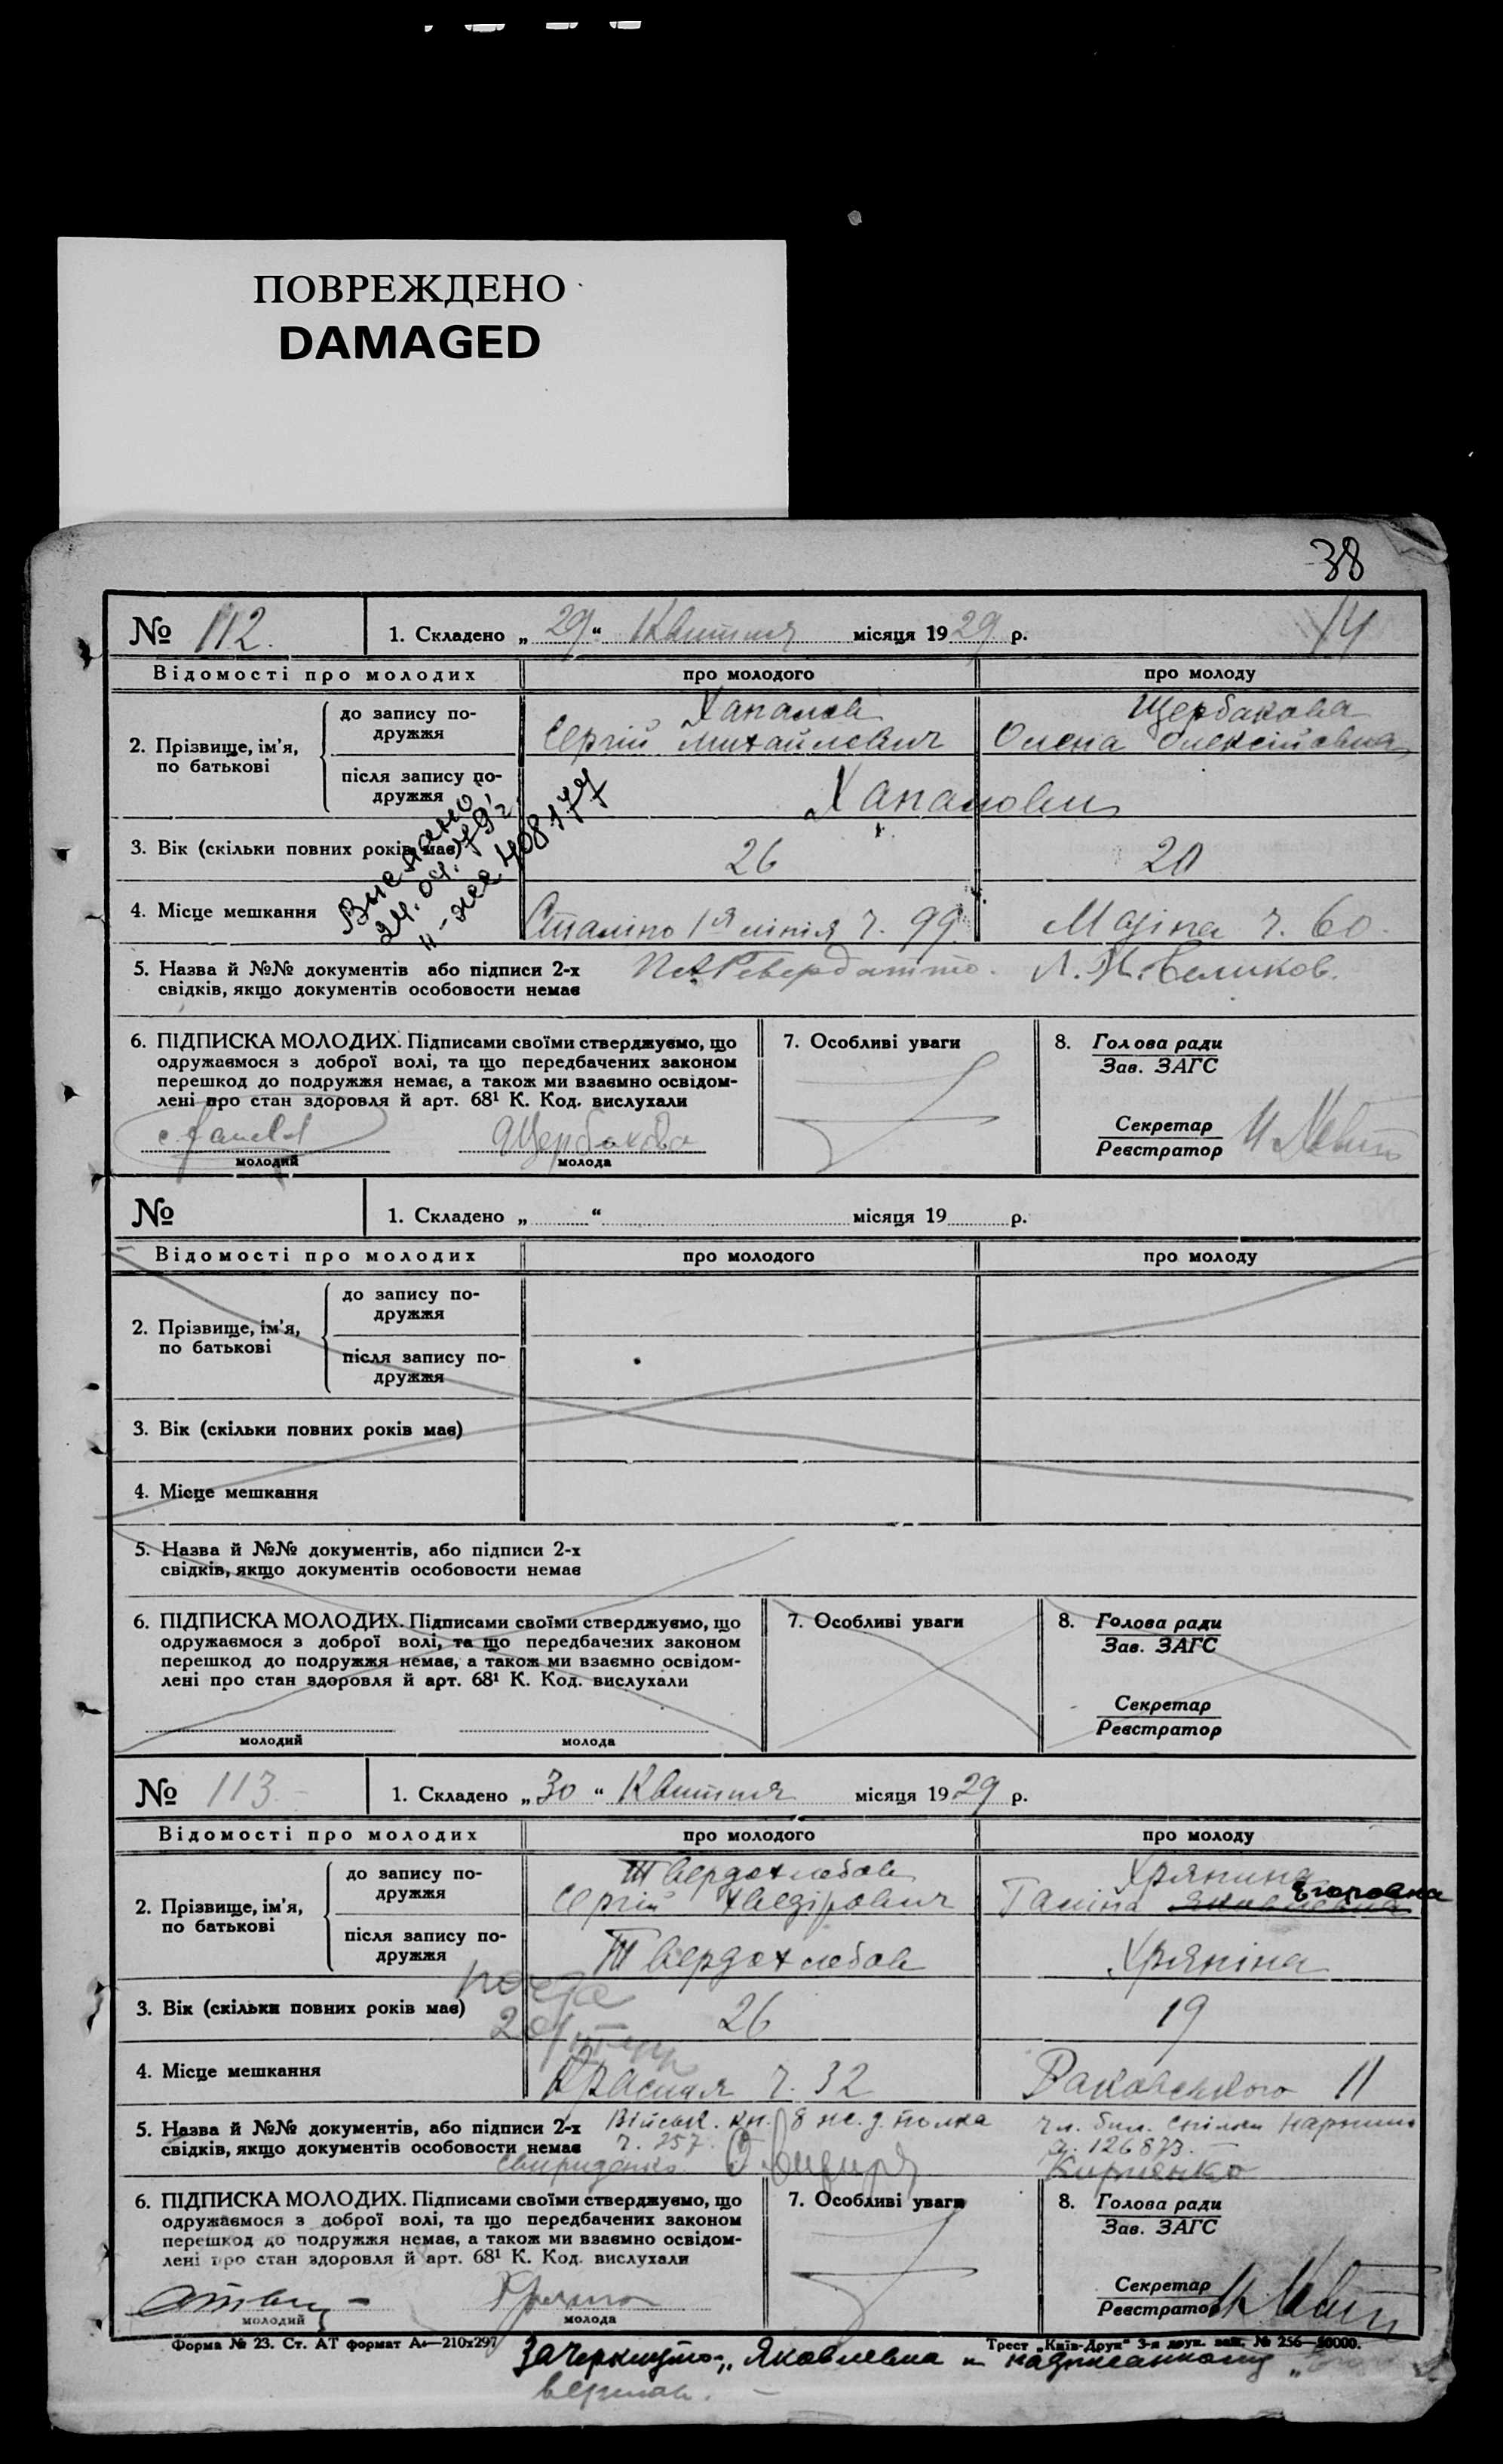 ПОВРЕЖДЕНО
DAMAGED
38
14
№ 112. 1. Складено „29“ Квітня місяця 1929 р.
Відомості про молодих про молодого про молоду
2. Прізвище, ім'я, по батькові
до запису подружжя
Хапалов Щербакова
Сергій Михайлович Олена Олексіївна
після запису подружжя
Хапалови
3. Вік (скільки повних років має) 26 20
Выслано
4. Місце мешкання Сталіно 1я лінія ч. 99 ч. 60.
5. Назва й №№ документів або підписи 2-х
свідків, якщо документів особовости немає
6. ПІДПИСКА МОЛОДИХ. Підписами своїми стверджуємо, що
одружаємося з доброї волі, та що передбачених законом
перешкод до подружжя немає, а також ми взаємно освідом-
лені про стан здоровля й арт. 68¹ К. Код. вислухали
Щербакова
молодий молода
7. Особливі уваги
8. Голова ради
Зав. ЗАГС
Секретар
Реєстратор
№ 1. Складено „ “ місяця 19 р.
Відомості про молодих про молодого про молоду
2. Прізвище, ім'я, по батькові
до запису по-
дружжя
після запису по-
дружжя
3. Вік (скільки повних років має)
4. Місце мешкання
5. Назва й №№ документів, або підписи 2-х
свідків, якщо документів особовости немає
6. ПІДПИСКА МОЛОДИХ. Підписами своїми стверджуємо, що
одружаємося з доброї волі, та що передбачених законом
перешкод до подружжя немає, а також ми взаємно освідом-
лені про стан здоровля й арт. 68¹ К. Код. вислухали
молодий молода
7. Особливі уваги
8. Голова ради
Зав. ЗАГС
Секретар
Реєстратор
№ 113 1. Складено „30“ Квітня місяця 1929 р.
Відомості про молодих про молодого про молоду
2. Прізвище, ім'я, по батькові
до запису по-
дружжя
Твердохлебов Хряпина
Сергій Хведірович Галіна Яковлевна Егоровна
після запису по-
дружжя
Твердохлебов Хряпіна
3. Вік (скільки повних років має) 26 19
4. Місце мешкання Красная ч. 32 Раковського 11
5. Назва й №№ документів, або підписи 2-х Військ. кн. полка
свідків, якщо документів особовости немає ч. 257 126873
Свириденко Кириенко
6. ПІДПИСКА МОЛОДИХ. Підписами своїми стверджуємо, що
одружаємося з доброї волі, та що передбачених законом
перешкод до подружжя немає, а також ми взаємно освідом-
лені про стан здоровля й арт. 68¹ К. Код. вислухали
молодий молода
7. Особливі уваги
8. Голова ради
Зав. ЗАГС
Секретар
Реєстратор
Форма № 23. Ст. АТ формат А₄—210x297 Трест „Київ-Друк“ 3-я друк. зам. № 256—50000.
Зачеркнутому „Яковлевна и надписанному
верить.